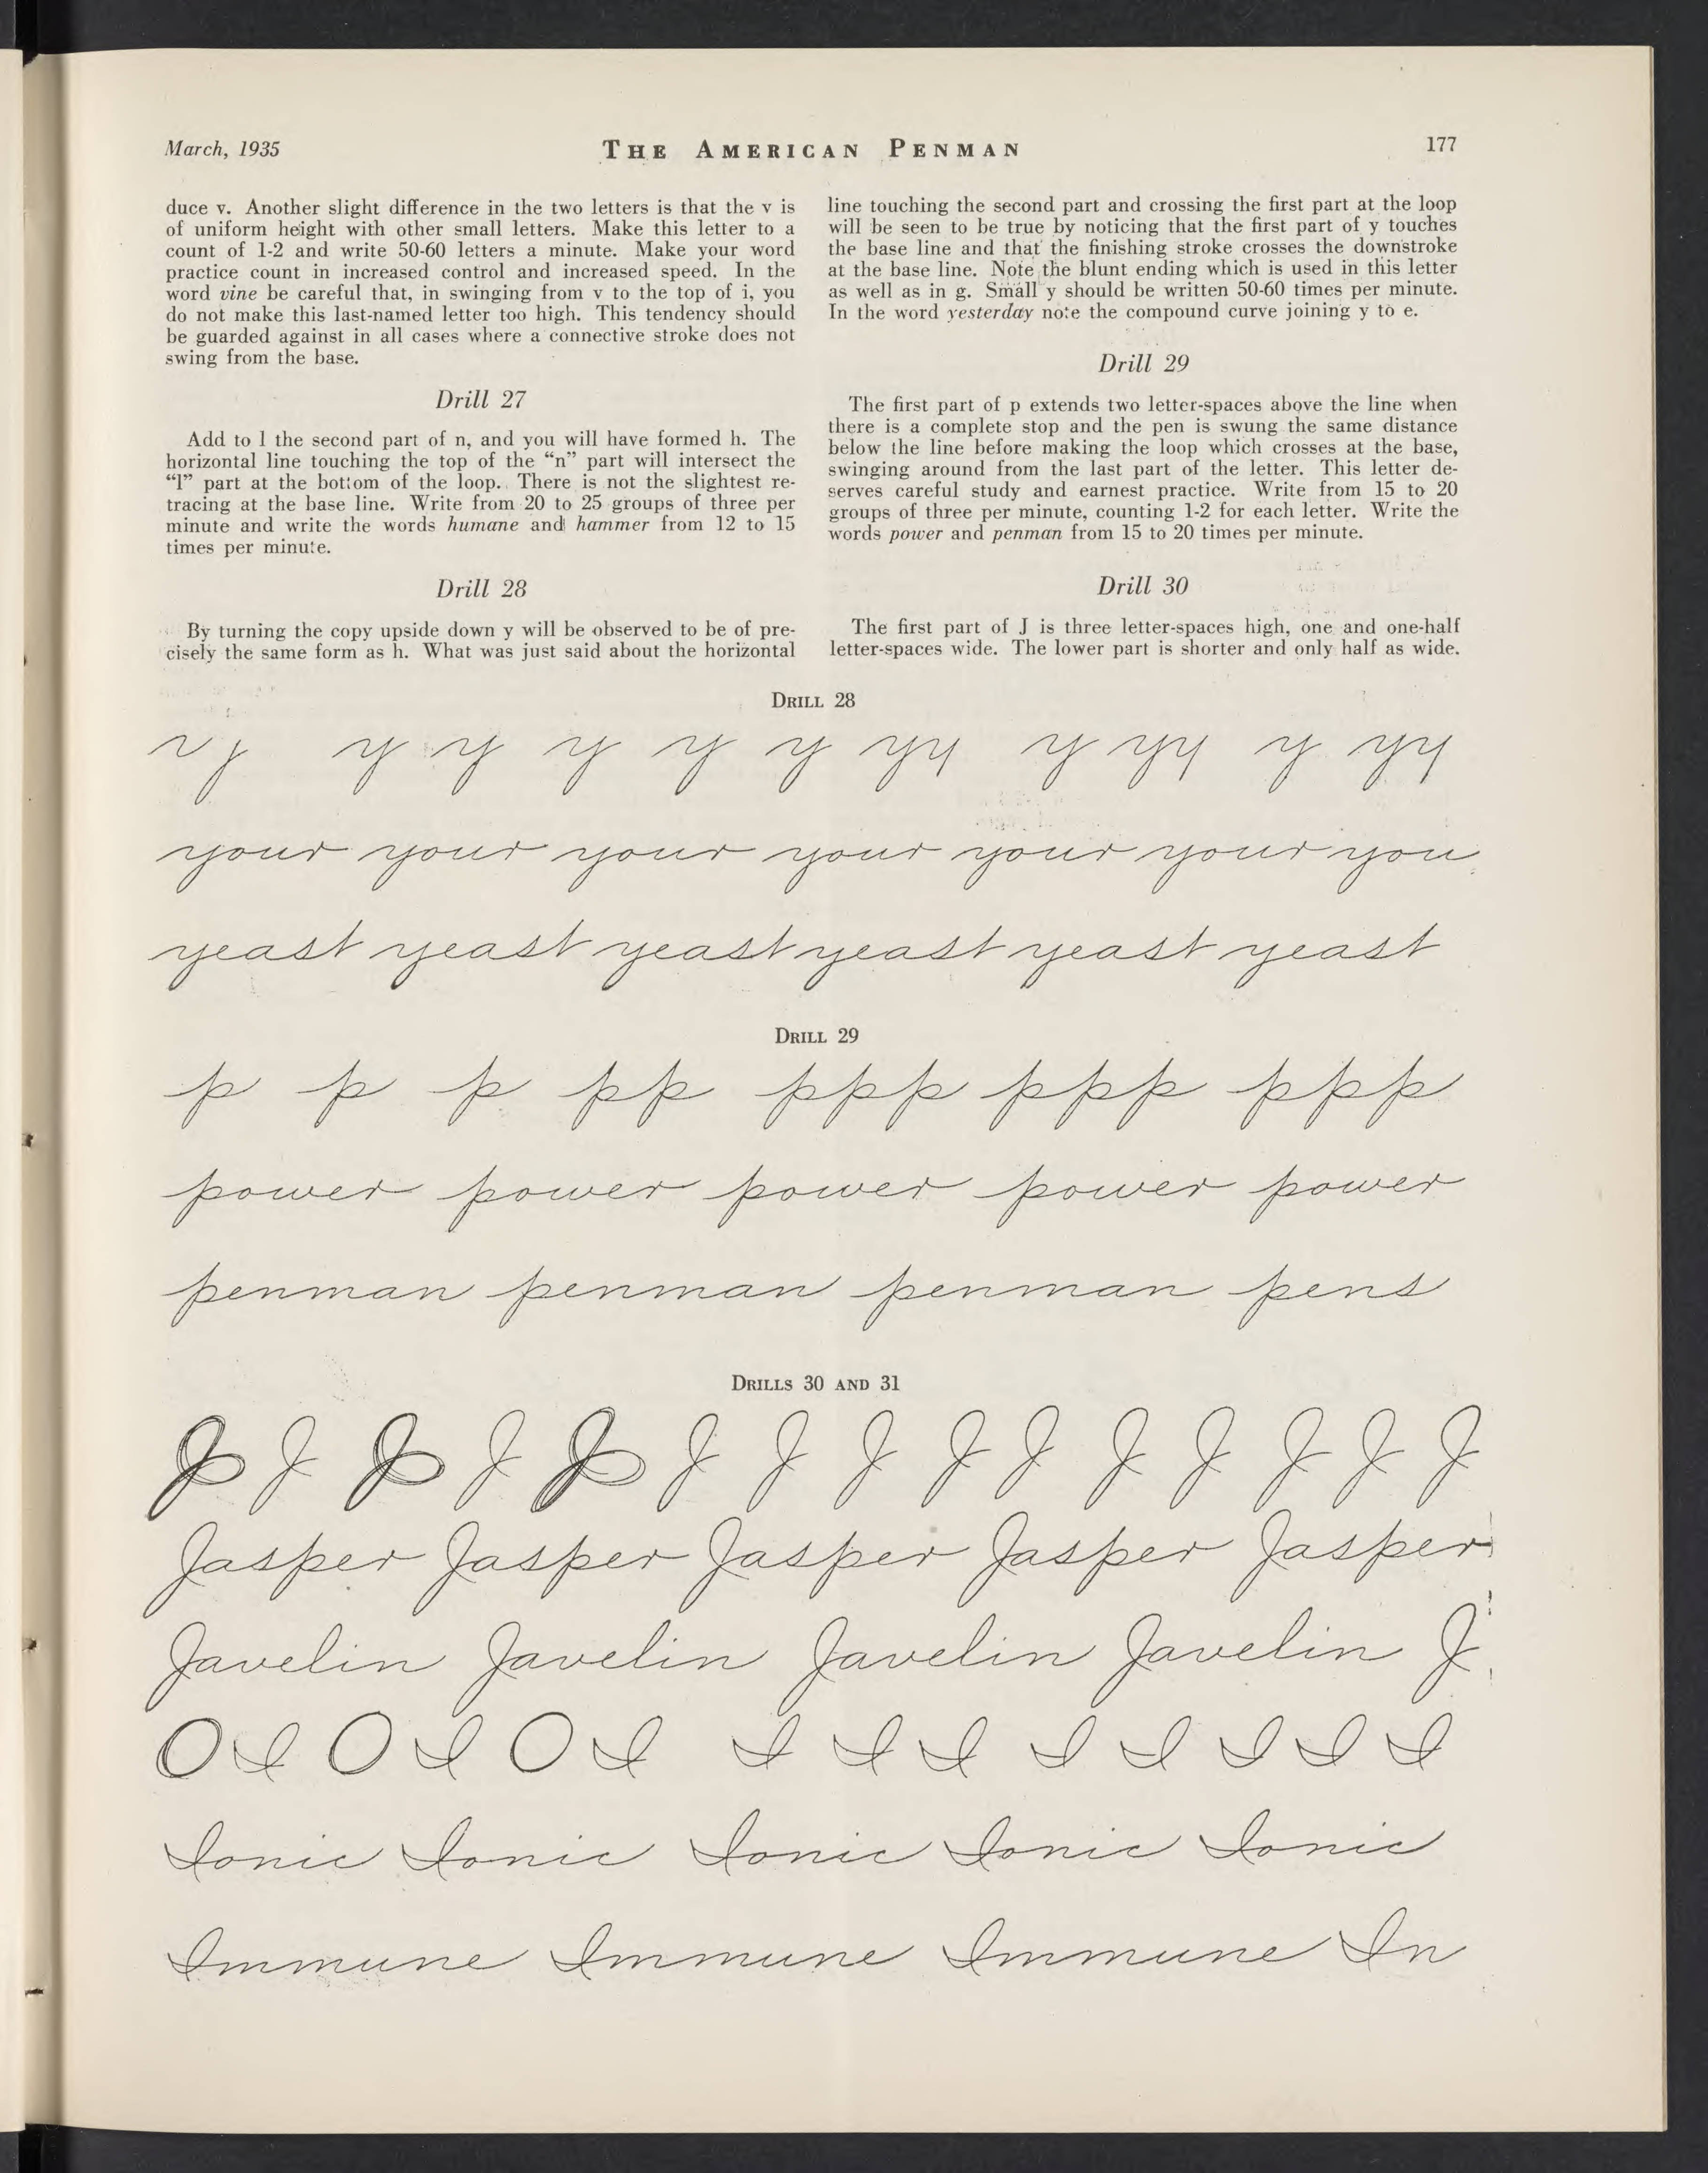 March, 1935
THE AMERICAN PENMAN
177
duce v. Another slight difference in the two letters is that the v is
of uniform height with other small letters. Make this letter to a
count of 1-2 and write 50-60 letters a minute. Make your word
practice count in increased control and increased speed. In the
word vine be careful that, in swinging from v to the top of i, you
do not make this last-named letter too high. This tendency should
be guarded against in all cases where a connective stroke does not
swing from the base.
Drill 27
Add to l the second part of n, and you will have formed h. The
horizontal line touching the top of the “n” part will intersect the
“l” part at the bottom of the loop. There is not the slightest re-
tracing at the base line. Write from 20 to 25 groups of three per
minute and write the words humane and hammer from 12 to 15
times per minute.
Drill 28
By turning the copy upside down y will be observed to be of pre-
cisely the same form as h. What was just said about the horizontal
line touching the second part and crossing the first part at the loop
will be seen to be true by noticing that the first part of y touches
the base line and that the finishing stroke crosses the downstroke
at the base line. Note the blunt ending which is used in this letter
as well as in g. Small y should be written 50-60 times per minute.
In the word yesterday note the compound curve joining y to e.
Drill 29
The first part of p extends two letter-spaces above the line when
there is a complete stop and the pen is swung the same distance
below the line before making the loop which crosses at the base,
swinging around from the last part of the letter. This letter de-
serves careful study and earnest practice. Write from 15 to 20
groups of three per minute, counting 1-2 for each letter. Write the
words power and penman from 15 to 20 times per minute.
Drill 30
The first part of J is three letter-spaces high, one and one-half
letter-spaces wide. The lower part is shorter and only half as wide.
DRILL 28
y y y y y yy y yy y yy
your your your your your your you
yeast yeast yeast yeast yeast yeast
DRILL 29
p p p pp ppp ppp ppp
power power power power power
penman penman penman pens
DRILLS 30 AND 31
J J J J J J J J J J J J J J J
Jasper Jasper Jasper Jasper Jasper
Javelin Javelin Javelin Javelin J
O I O I O I I I I I I I I I
Ionic Ionic Ionic Ionic Ionic
Immune Immune Immune In